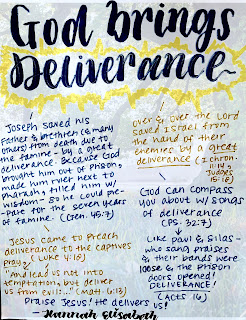 God brings
Deliverance~
Joseph saved his
Father & brethren (& many
others) from death due to
the famine - by a great
deliverance. Because God
brought him out of prison,
made him ruler next to
pharaoh & filled him w/
wisdom - so he could pre-
pare for the seven years
of famine. (Gen. 45:7)
Jesus came to Preach
deliverance to the captives
pray (Luke 4:18)
"And lead us not into
temptation, but deliver
us from evil:..." (Matt. 6:13)
over & over the Lord
saved Israel from
the hand of their
enemies by a great
deliverance (1 Chron.
11:14,
Judges
15:18)
God can compass
you about w/ songs
of deliverance
(PS. 32:7)
Like paul & Silas-
who sang praises
& their bands were
loose & the prison
doors opened!
DELIVERANCE!
(Acts 16)
Praise Jesus! He delivers us!
- Hannah Elisabeth